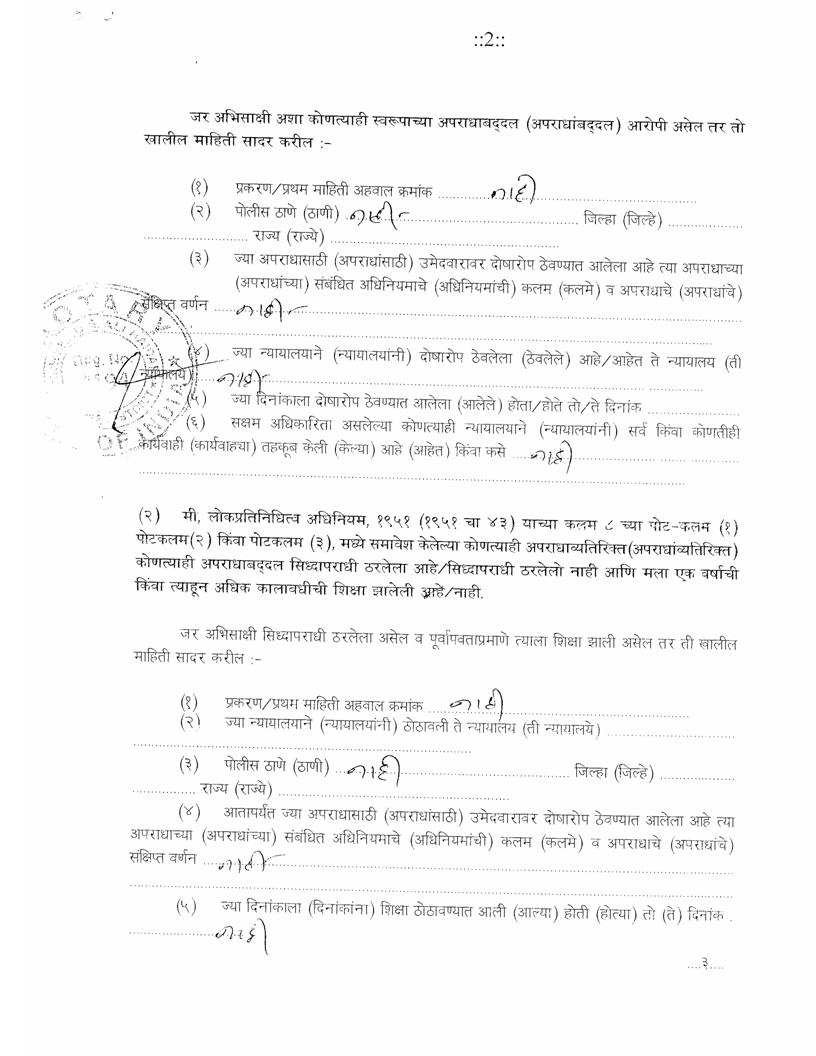 ::2::
जर अभिसाक्षी अशा कोणत्याही स्वरूपाच्या अपराधाबद्दल (अपराधांबद्दल) आरोपी असेल तर तो
खालील माहिती सादर करील :-
(१) प्रकरण/प्रथम माहिती अहवाल क्रमांक ............नाही..............................
(२) पोलीस ठाणे (ठाणी) ..नाही............................................ जिल्हा (जिल्हे) ....................
............................ राज्य (राज्ये) ............................................................
(३) ज्या अपराधासाठी (अपराधांसाठी) उमेदवारावर दोषारोप ठेवण्यात आलेला आहे त्या अपराधाच्या
(अपराधांच्या) संबंधित अधिनियमाचे (अधिनियमांची) कलम (कलमे) व अपराधाचे (अपराधांचे)
संक्षिप्त वर्णन .....नाही............................................................
NOTARY
Reg. No
OF INDIA
(४) ज्या न्यायालयाने (न्यायालयांनी) दोषारोप ठेवलेला (ठेवलेले) आहे/आहेत ते न्यायालय (ती
न्यायालये) ....नाही............................................................
(५) ज्या दिनांकाला दोषारोप ठेवण्यात आलेला (आलेले) होता/होते तो/ते दिनांक ......................
(६) सक्षम अधिकारिता असलेल्या कोणत्याही न्यायालयाने (न्यायालयांनी) सर्व किंवा कोणतीही
कार्यवाही (कार्यवाह्या) तहकूब केली (केल्या) आहे (आहेत) किंवा कसे ....नाही..............................
(२) मी, लोकप्रतिनिधित्व अधिनियम, १९५१ (१९५१ चा ४३) याच्या कलम ८ च्या पोट-कलम (१)
पोटकलम(२) किंवा पोटकलम (३), मध्ये समावेश केलेल्या कोणत्याही अपराधाव्यतिरिक्त(अपराधांव्यतिरिक्त)
कोणत्याही अपराधाबद्दल सिध्दापराधी ठरलेला आहे/सिध्दापराधी ठरलेलो नाही आणि मला एक वर्षाची
किंवा त्याहून अधिक कालावधीची शिक्षा झालेली आहे/नाही.
जर अभिसाक्षी सिध्दापराधी ठरलेला असेल व पूर्वापवताप्रमाणे त्याला शिक्षा झाली असेल तर ती खालील
माहिती सादर करील :-
(१) प्रकरण/प्रथम माहिती अहवाल क्रमांक .....नाही..............................
(२) ज्या न्यायालयाने (न्यायालयांनी) ठोठावली ते न्यायालय (ती न्यायालये) ..............................
(३) पोलीस ठाणे (ठाणी) ...नाही.................................... जिल्हा (जिल्हे) ....................
................. राज्य (राज्ये) ............................................................
(४) आतापर्यंत ज्या अपराधासाठी (अपराधांसाठी) उमेदवारावर दोषारोप ठेवण्यात आलेला आहे त्या
अपराधाच्या (अपराधांच्या) संबंधित अधिनियमाचे (अधिनियमांची) कलम (कलमे) व अपराधाचे (अपराधांचे)
संक्षिप्त वर्णन ....नाही............................................................
(५) ज्या दिनांकाला (दिनांकांना) शिक्षा ठोठावण्यात आली (आल्या) होती (होत्या) तो (ते) दिनांक .
......................नाही
....३....